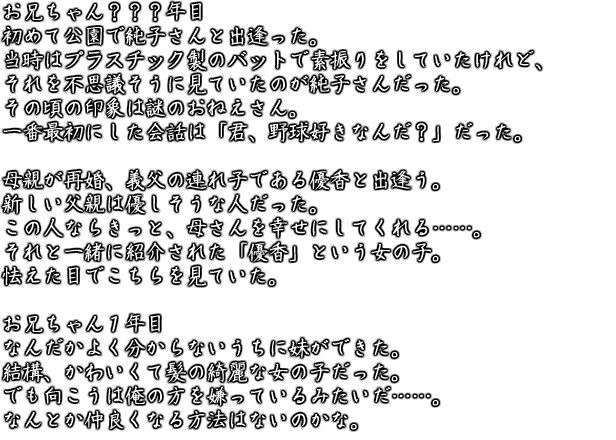 お兄ちゃん？？？年目
初めて公園で純子さんと出逢った。
当時はプラスチック製のバットで素振りをしていたけれど、
それを不思議そうに見ていたのが純子さんだった。
その頃の印象は謎のおねえさん。
一番最初にした会話は「君、野球好きなんだ？」だった。

母親が再婚、義父の連れ子である優香と出逢う。
新しい父親は優しそうな人だった。
この人ならきっと、母さんを幸せにしてくれる……。
それと一緒に紹介された「優香」という女の子。
怯えた目でこちらを見ていた。

お兄ちゃん１年目
なんだかよく分からないうちに妹ができた。
結構、かわいくて髪の綺麗な女の子だった。
でも向こうは俺の方を嫌っているみたいだ……。
なんとか仲良くなる方法はないのかな。